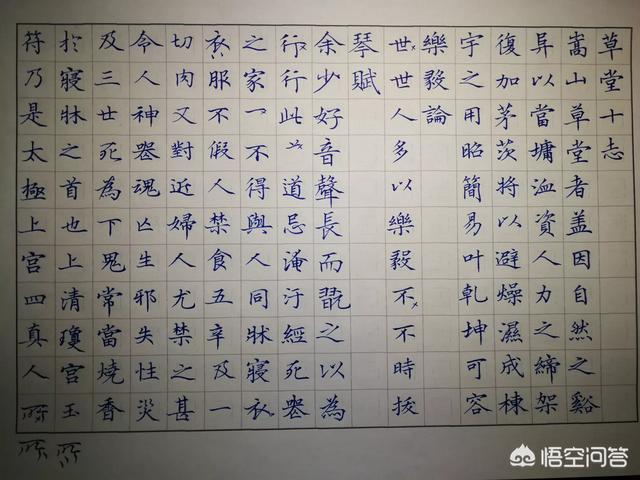 草堂十志
嵩山草堂者盖因自然之谿
异以當墉洫資人力之締架
復加茅茨將以避燥濕成棟
宇之用昭簡易叶乾坤可容
樂毅論
世世人多以樂毅不不時拔
琴賦
余少好音聲長而翫之以為
行行此道忌淹汙經死器
之家一不得與人同牀寢衣
衣服不假人禁食五辛及一
切肉又對近婦人尤禁之甚
令人神器魂亡生邪失性災
及三世死為下鬼常當燒香
於寢牀之首也上清瓊宮玉
符乃是太極上宮四真人所
所所
悟空问答